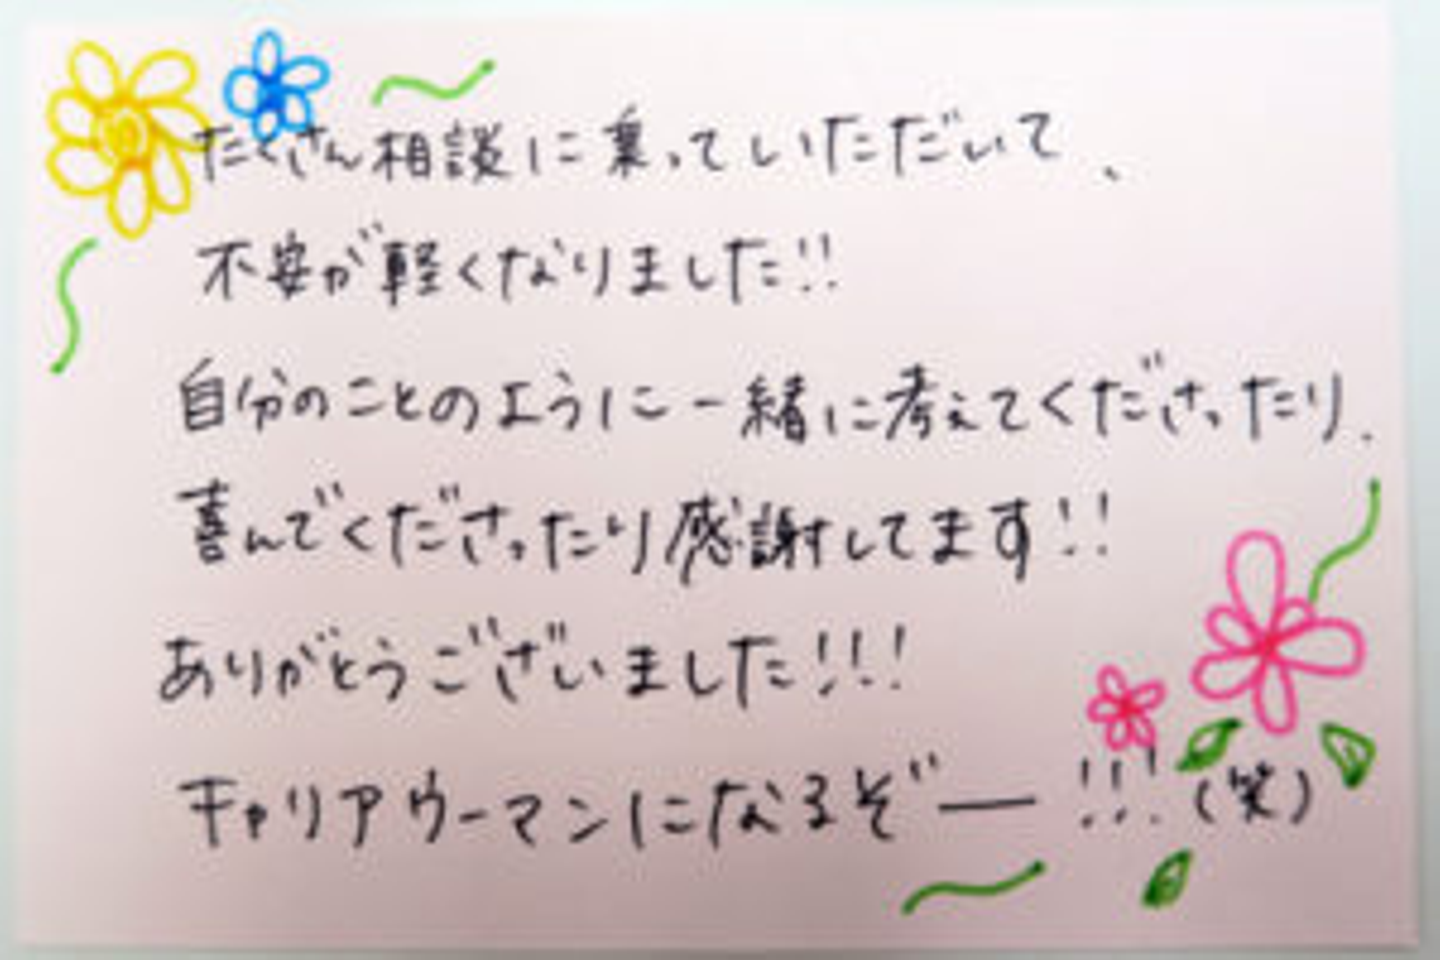 たくさん相談に乗っていただいて、
不安が軽くなりました!!
自分のことのように一緒に考えてくださったり、
喜んでくださったり感謝してます!!
ありがとうございました!!!
キャリアウーマンになるぞー!!!(笑)